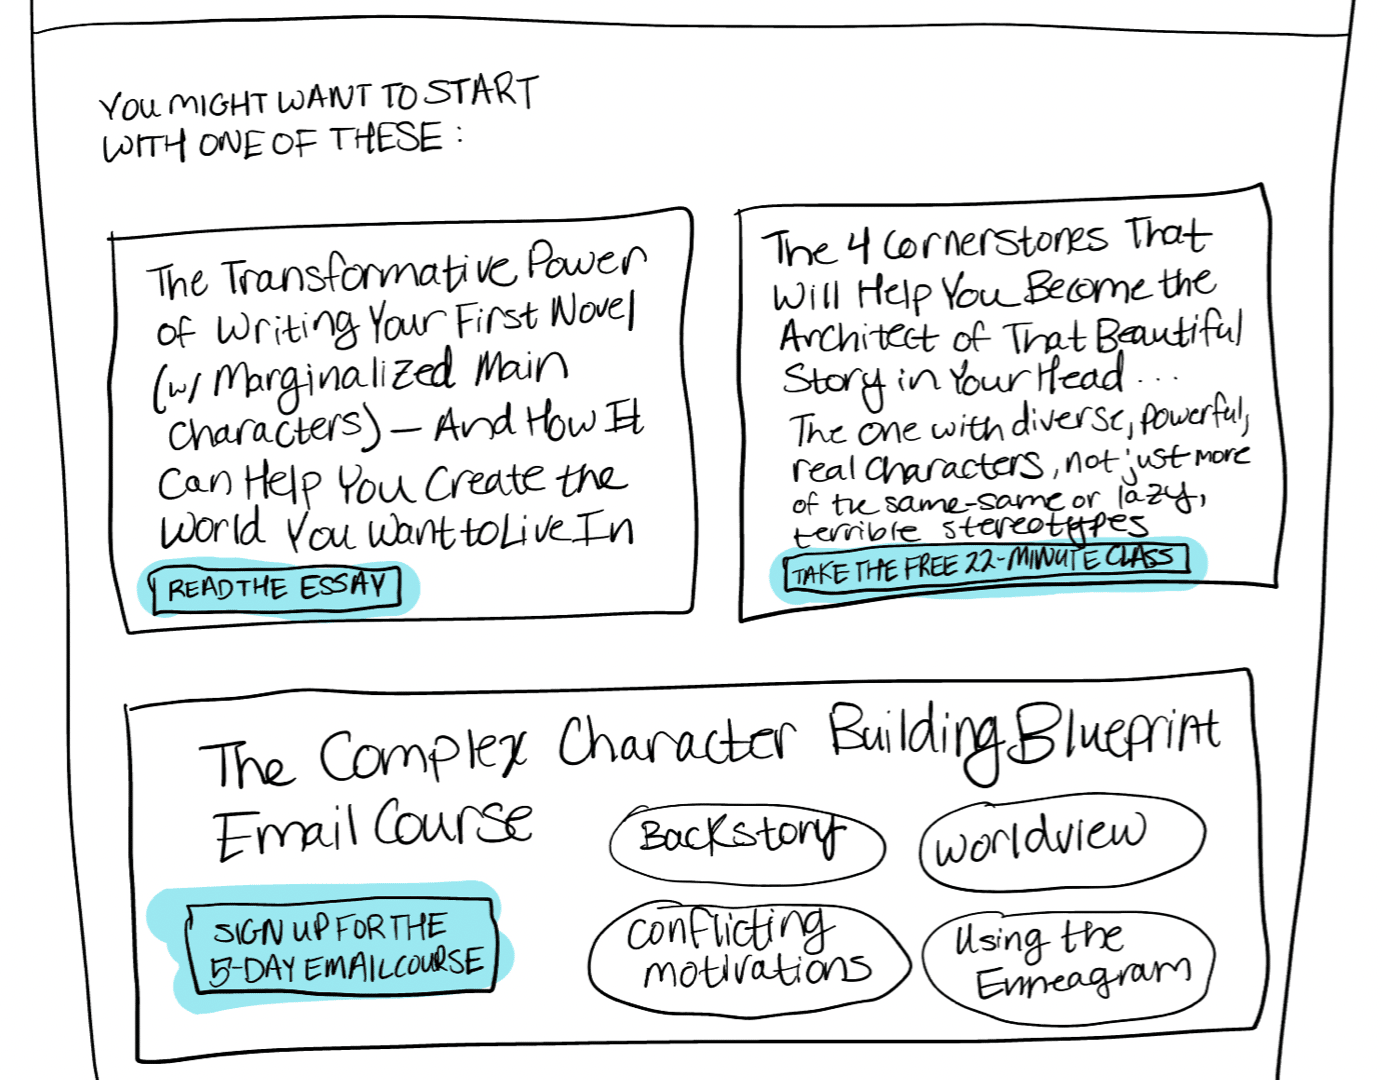 YOU MIGHT WANT TO START
WITH ONE OF THESE:
The Transformative Power
of Writing Your First Novel
(w/ Marginalized Main
Characters) — And How It
Can Help You Create the
World You Want to Live In
READ THE ESSAY
The 4 Cornerstones That
Will Help You Become the
Architect of That Beautiful
Story in Your Head...
The one with diverse, powerful,
real characters, not just more
of the same-same or lazy,
terrible stereotypes
TAKE THE FREE 22-MINUTE CLASS
The Complex Character Building Blueprint
Email Course
SIGN UP FOR THE
5-DAY EMAIL COURSE
Backstory
Worldview
Conflicting
motivations
Using the
Enneagram